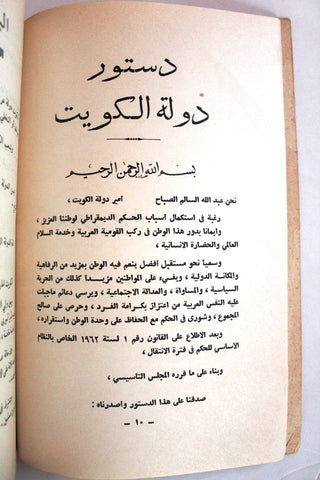 دستور
دولة الكويت
بسم الله الرحمن الرحيم
نحن عبد الله السالم الصباح أمير دولة الكويت ،
رغبة في استكمال أسباب الحكم الديمقراطي لوطننا العزيز ،
وايمانا بدور هذا الوطن في ركب القومية العربية وخدمة السلام
العالمي والحضارة الانسانية ،
وسعيا نحو مستقبل أفضل ينعم فيه الوطن بمزيد من الرفاهية
والمكانة الدولية ، ويفيء على المواطنين مزيدا كذلك من الحرية
السياسية ، والمساواة ، والعدالة الاجتماعية ، ويرسي دعائم ماجبلت
عليه النفس العربية من اعتزاز بكرامة الفرد ، وحرص على صالح
المجموع ، وشورى في الحكم مع الحفاظ على وحدة الوطن واستقراره ،
وبعد الاطلاع على القانون رقم ١ لسنة ١٩٦٢ الخاص بالنظام
الاساسي للحكم في فترة الانتقال ،
وبناء على ما قرره المجلس التأسيسي ،
صدقنا على هذا الدستور واصدرناه :
— ١٠ —